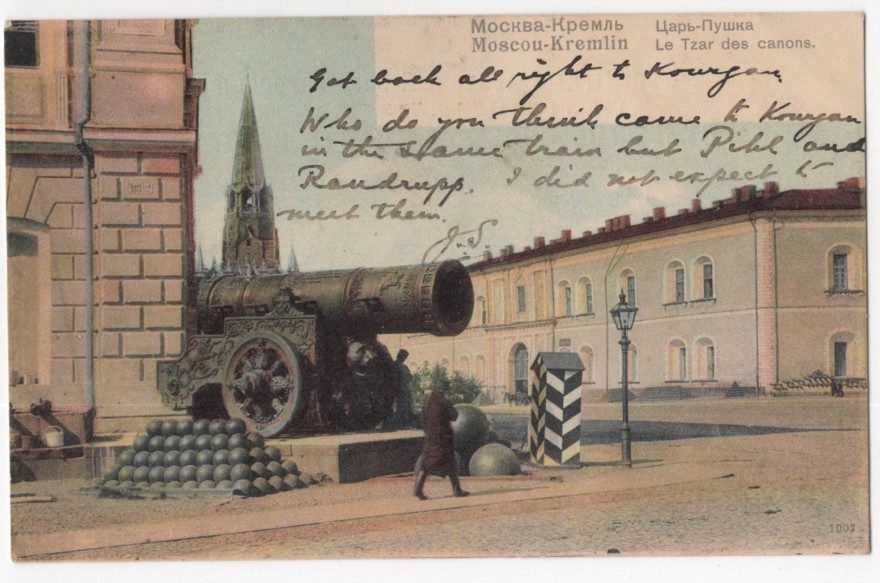 Москва-Кремль Царь-Пушка
Moscou-Kremlin Le Tzar des canons.
Got back all right to Kourgan
Who do you think came to Kourgan
in the same train but Pihl and
Randrupp. I did not expect to
meet them.
J.S.
1002